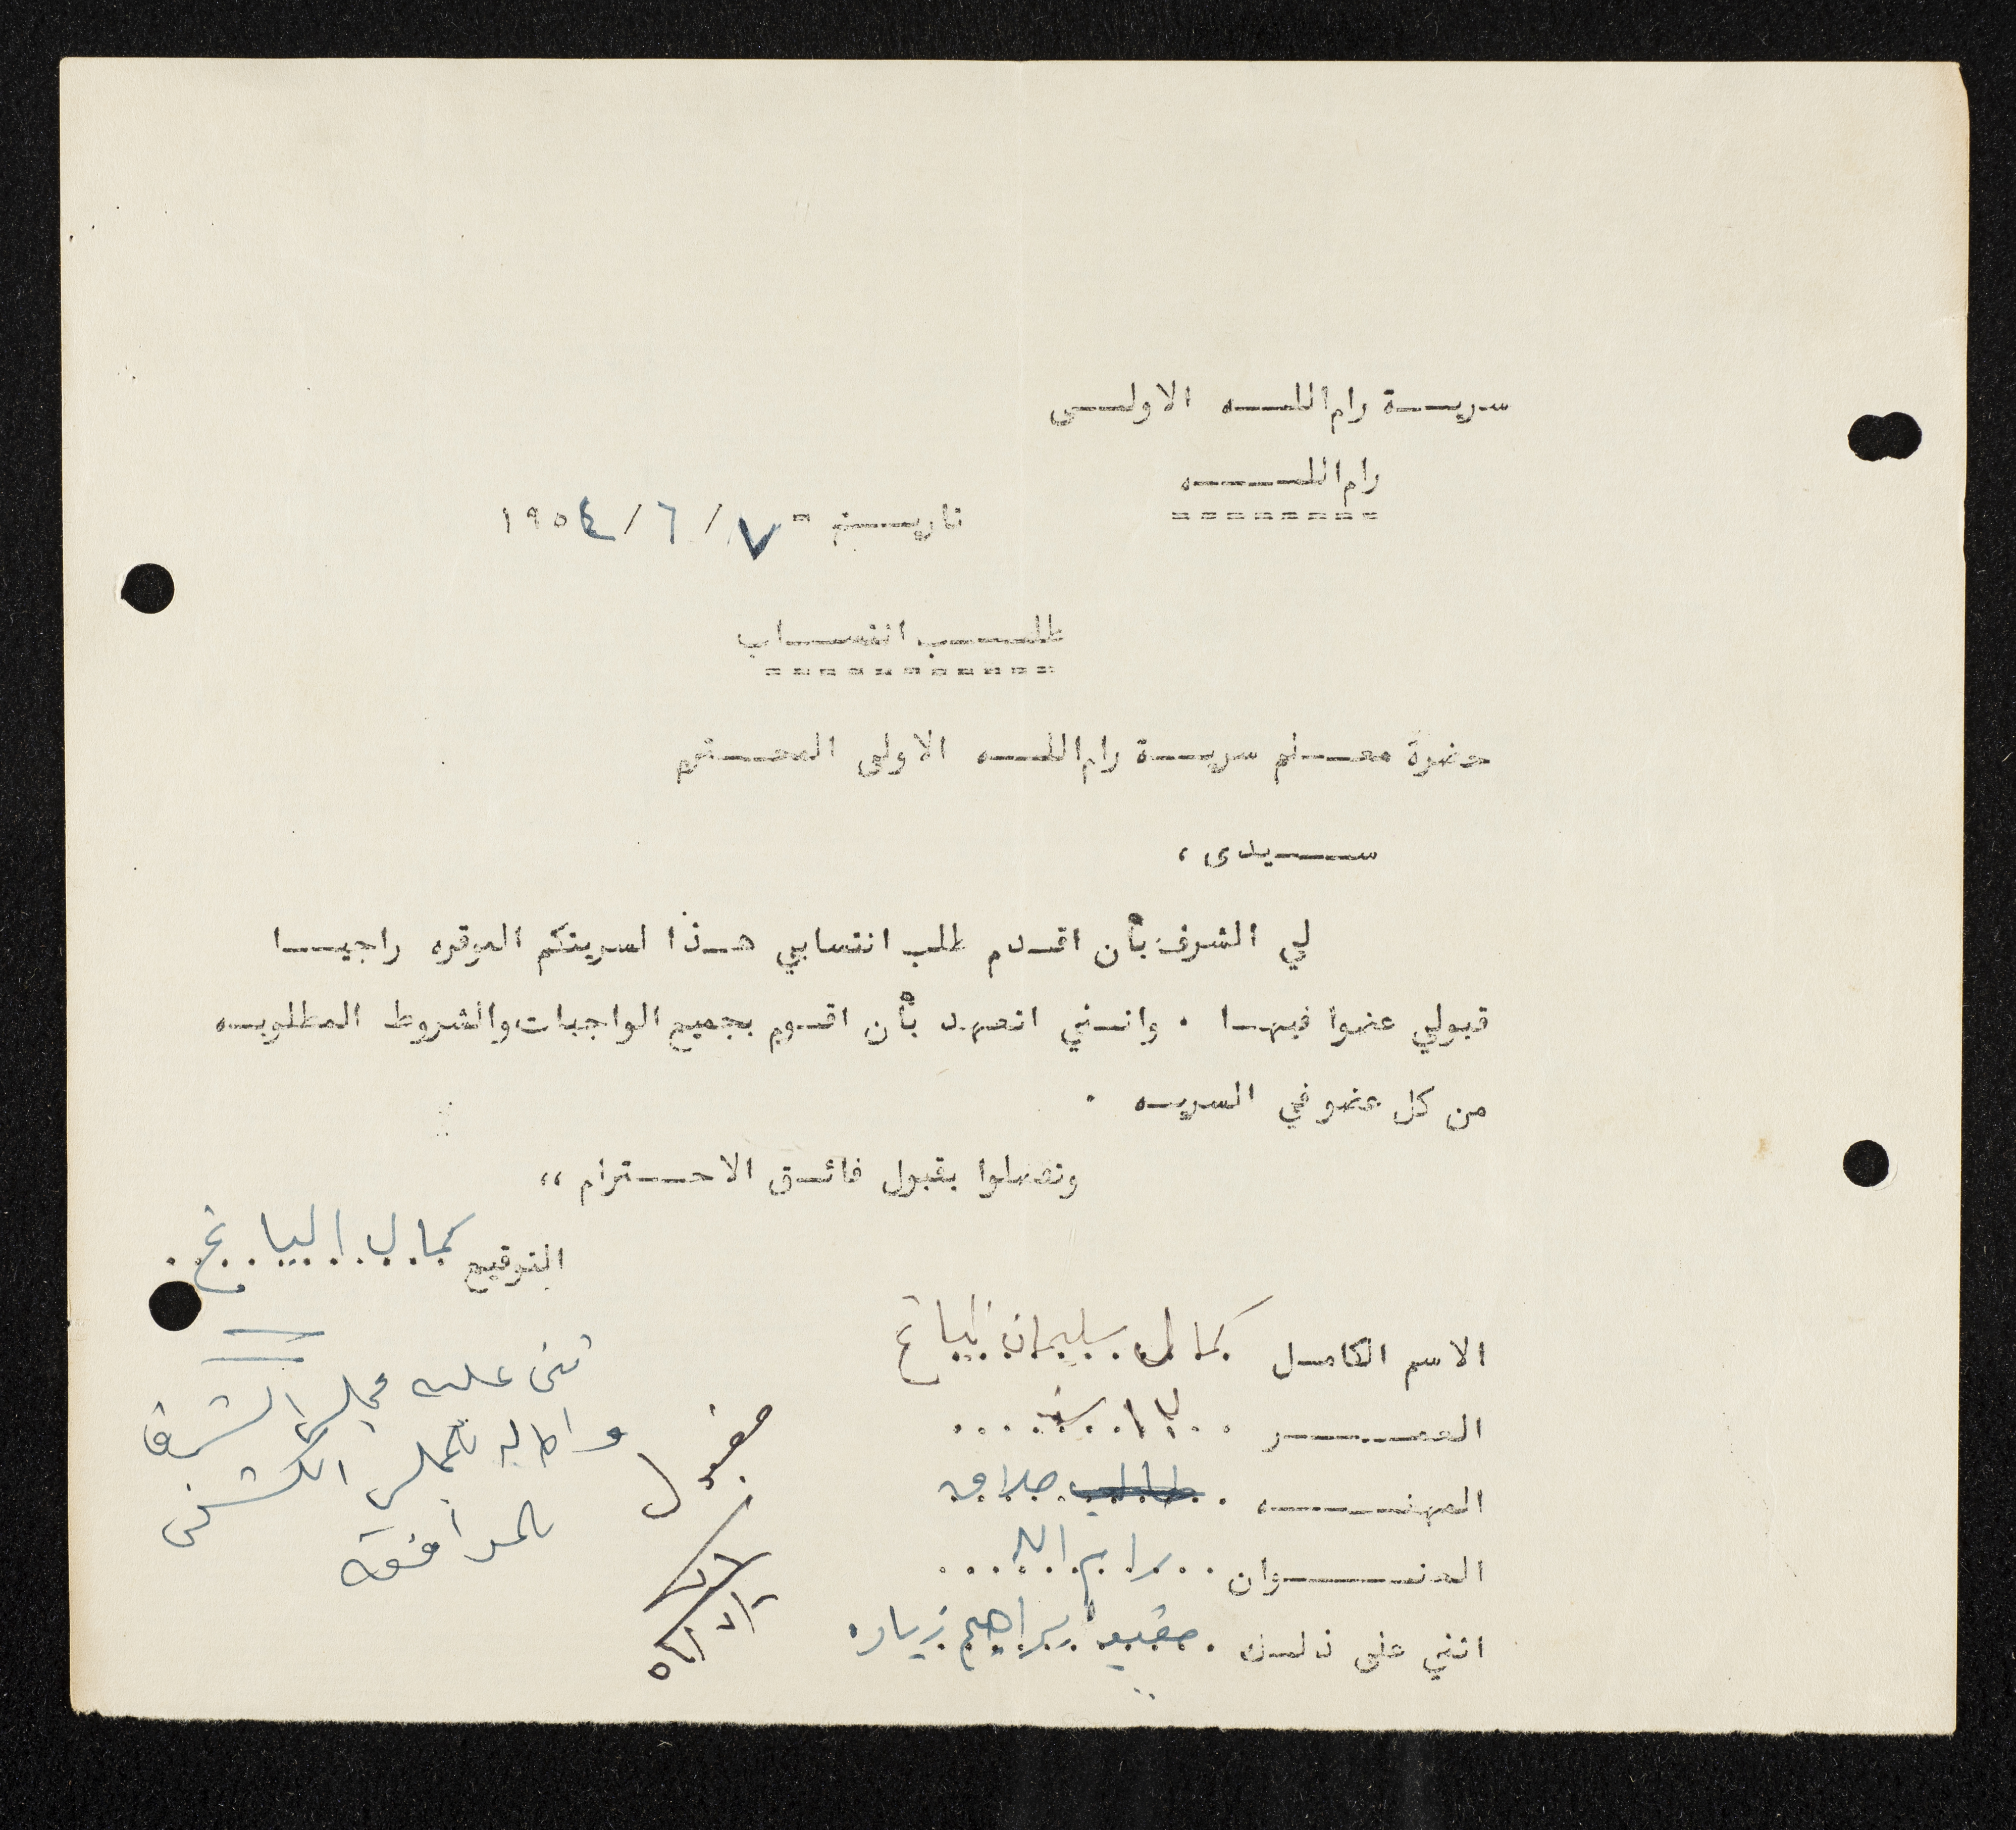 سرية رام الله الاولى
رام الله
تاريخ - ٧ / ٦ / ١٩٥٤
طلب انتساب
حضرة معلم سرية رام الله الاولى المحترم
سيدى ،
لي الشرف بأن اقدم طلب انتسابي هذا لسريتكم الموقره راجيا
قبولي عضوا فيها . وانني اتعهد بأن اقوم بجميع الواجبات والشروط المطلوبه
من كل عضو في السريه .
وتفضلوا بقبول فائق الاحترام ،،
التوقيع كمال الياغ
الاسم الكامل كمال سليمان الياغ
العمر سنه
المهنه طالب حلاق
العنوان رام الله
اثني على ذلك ابراهيم زياده
مقبول
ثنى عليه مجلس الشرف
المجلس الكشفي
بالموافقة